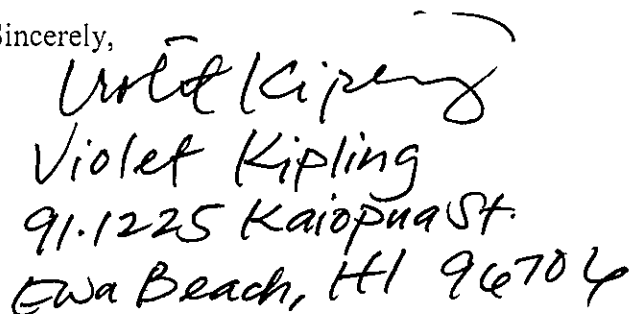 Sincerely,
Violet Kipling
Violet Kipling
91.1225 Kaiopua St.
Ewa Beach, HI 96706